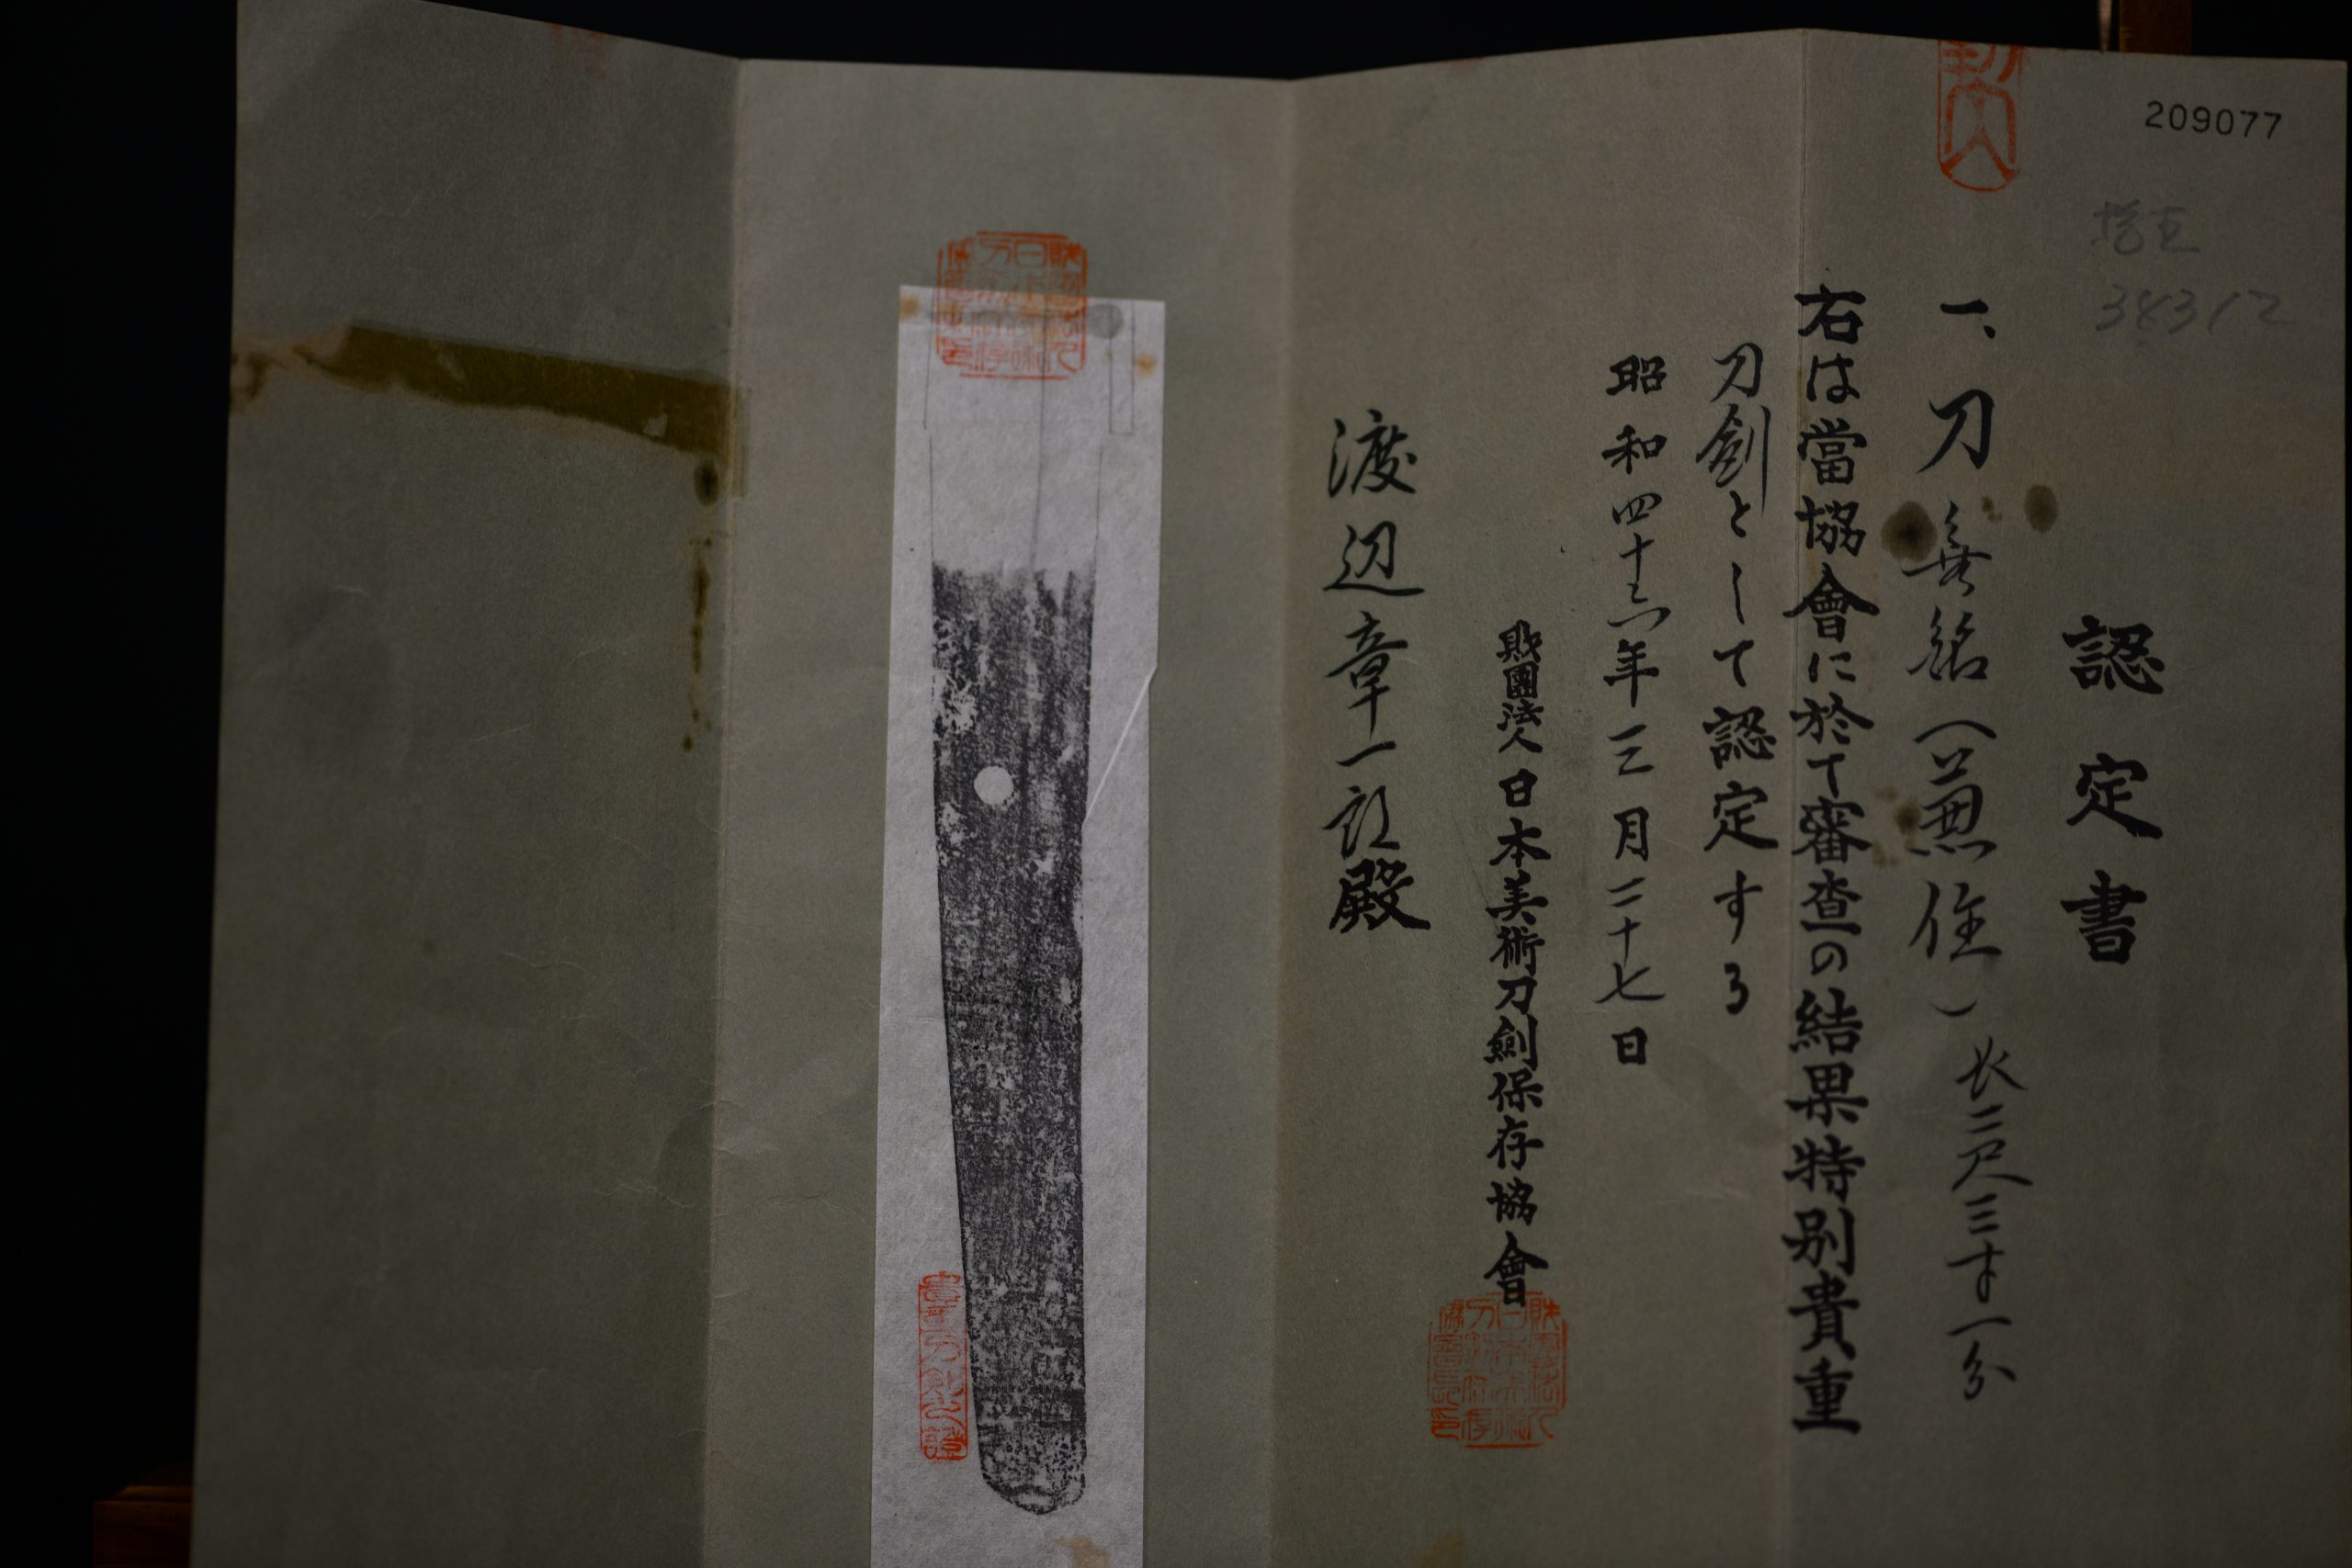 209077
認定書
一、刀 無銘(兼住)長二尺三寸一分
右は當協會に於て審査の結果特別貴重
刀剣として認定する
昭和四十六年三月二十七日
財團法人日本美術刀劍保存協會
渡辺章一郎殿